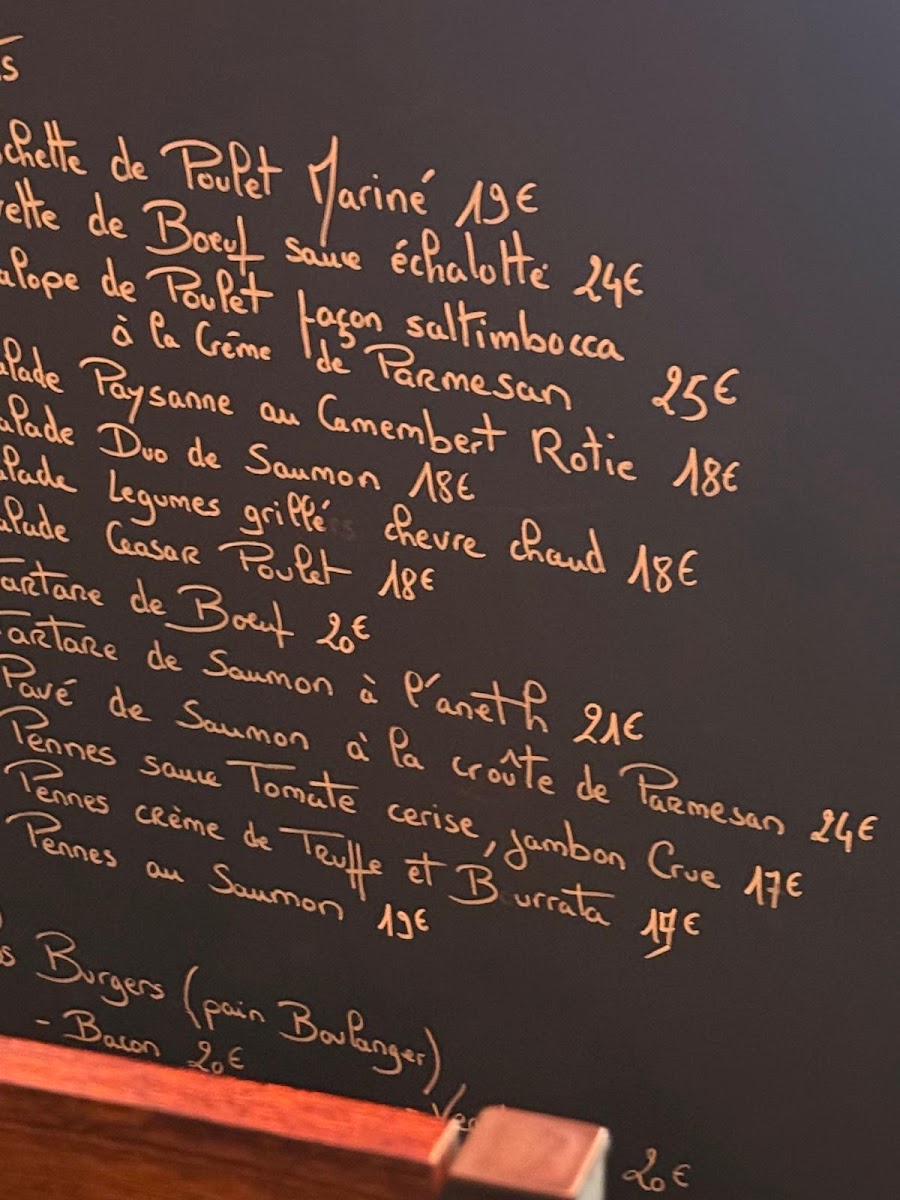 ts
chette de Poulet Mariné 19€
vette de Boeuf sauce échalotte 24€
alope de Poulet façon saltimbocca
à la Crême de Parmesan 25€
alade Paysanne au Camembert Rotie 18€
alade Duo de Saumon 18€
alade Legumes grillé chevre chaud 18€
alade Ceasar Poulet 18€
Tartare de Boeuf 20€
Tartare de Saumon à l'aneth 21€
Pavé de Saumon à la croûte de Parmesan 24€
Pennes sauce Tomate cerise, jambon Crue 17€
Pennes crème de Truffe et Burrata 17€
Pennes au Saumon 19€
os Burgers (pain Boulanger)
- Bacon 20€
- Veg 20€